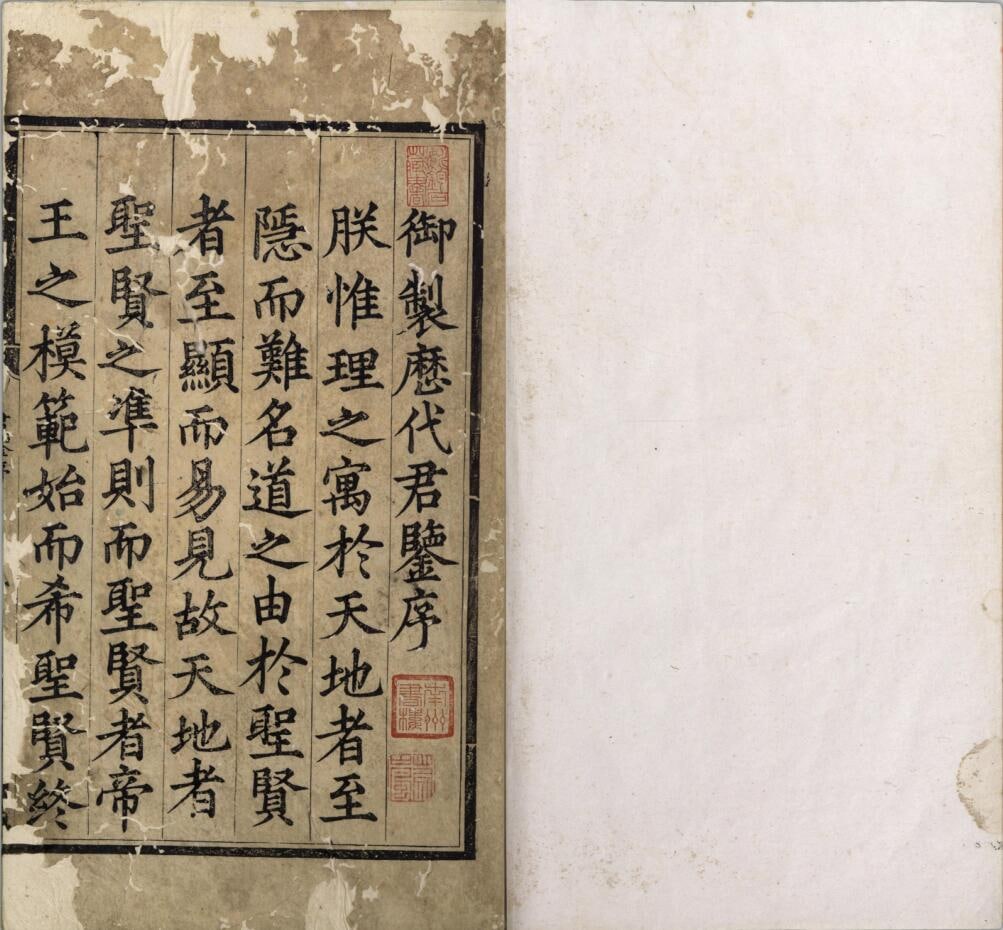 御製歷代君鑒序
朕惟理之寓於天地者至
隱而難名道之由於聖賢
者至顯而易見故天地者
聖賢之準則而聖賢者帝
王之模範始而希聖賢終
南州書樓